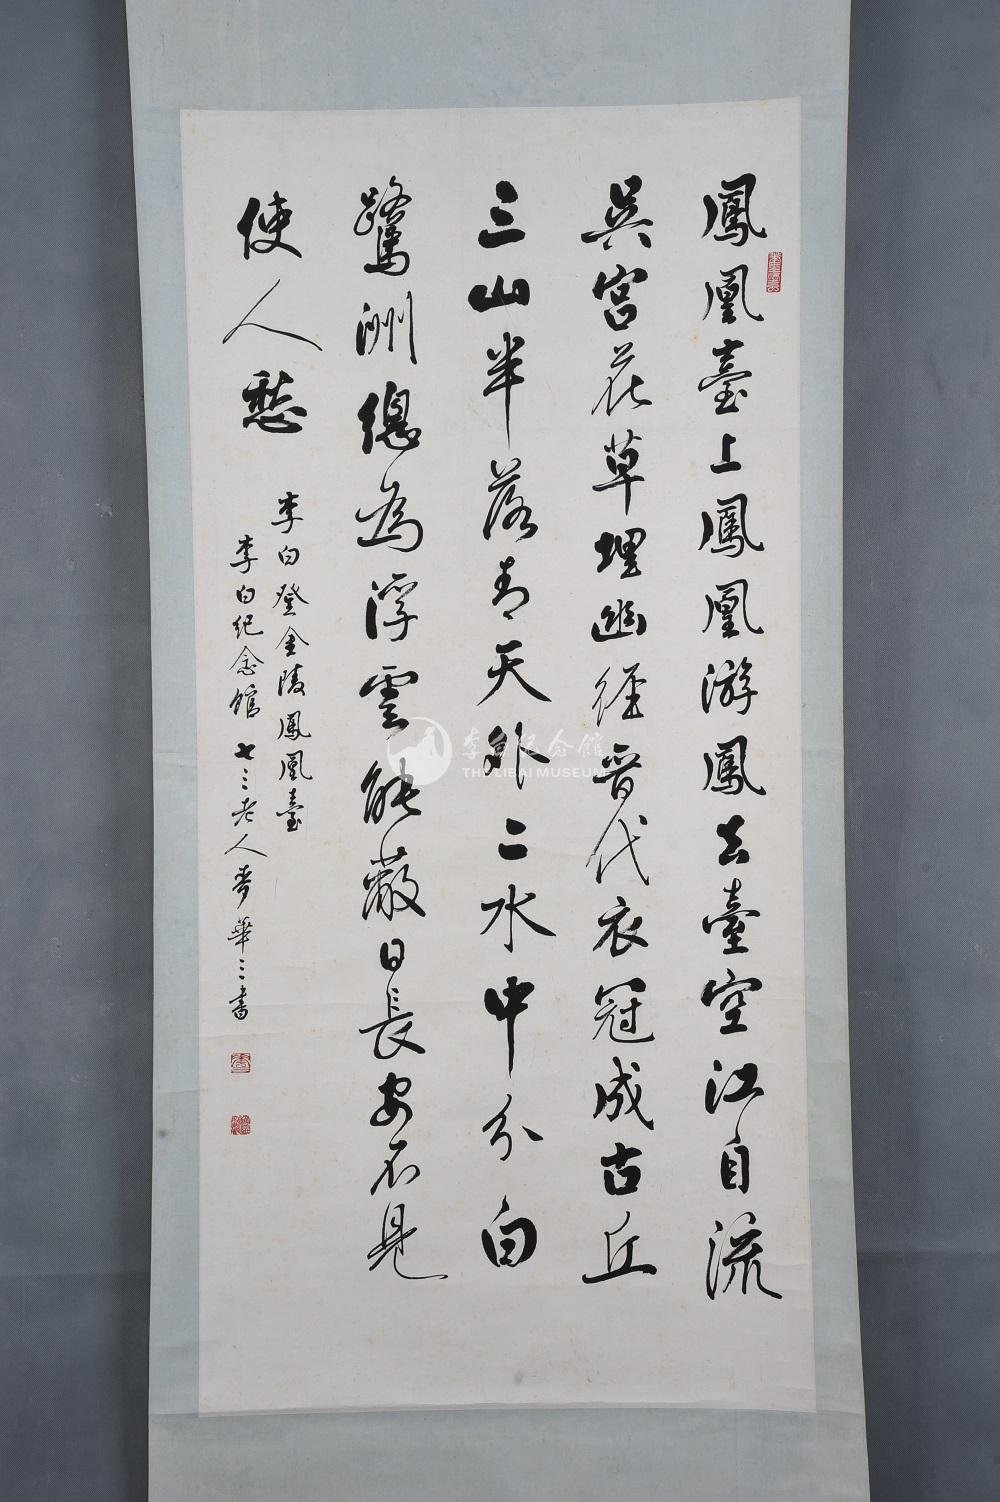 鳳凰臺上鳳凰游鳳去臺空江自流
吳宮花草埋幽徑晉代衣冠成古丘
三山半落青天外二水中分白
鷺洲總為浮雲能蔽日長安不見
使人愁
李白登金陵鳳凰臺
李白纪念館七三老人麥華三書
李白纪念館
THE LIBAI MUSEUM